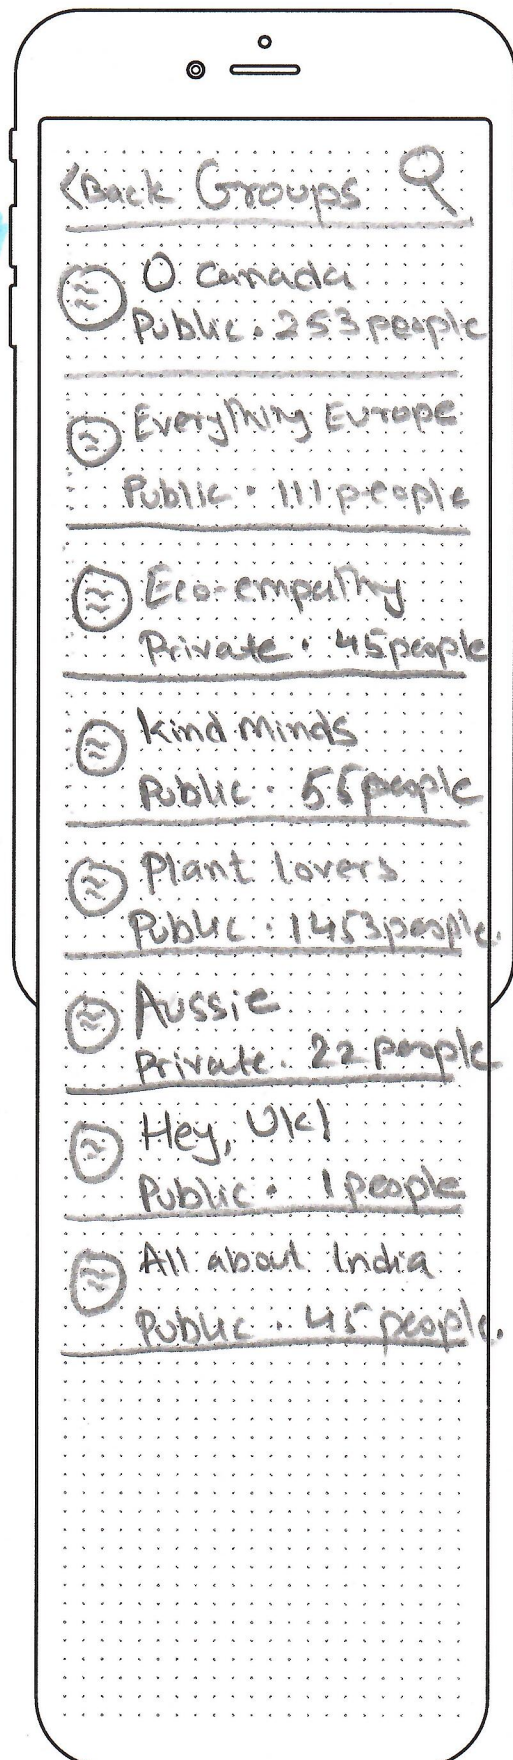 <Back Groups
O Canada
Public • 253 people
Everything Europe
Public • 111 people
Eco-empathy
Private • 45 people
Kind Minds
Public • 55 people
Plant lovers
Public • 1453 people
Aussie
Private • 22 people
Hey, UK!
Public • 1 people
All about India
Public • 45 people